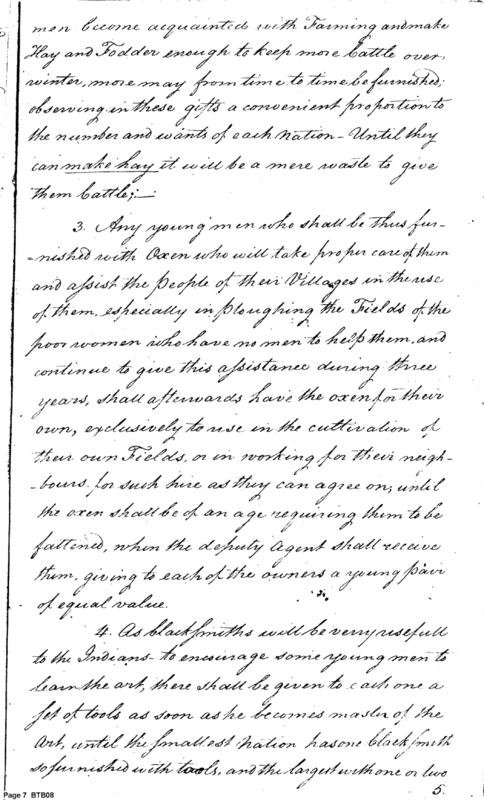 men become acquainted with Farming and make
Hay and Fodder enough to keep more Cattle over
winter, more may from time to time be furnished;
observing in these gifts a convenient proportion to
the number and wants of each Nation – Until they
can make hay it will be a mere waste to give
them Cattle; —
3. Any young men who shall be thus fur-
-nished with Oxen who will take proper care of them
and assist the People of their Villages in the use
of them, especially in Ploughing the Fields of the
poor women who have no men to help them, and
continue to give this assistance during three
years, shall afterwards have the oxen for their
own, exclusively to use in the cultivation of
their own Fields, or in working for their neigh-
-bours for such hire as they can agree on, until
the oxen shall be of an age requiring them to be
fattened, when the deputy Agent shall receive
them, giving to each of the owners a young Pair
of equal value.
4. As blacksmiths will be verry usefull
to the Indians – to encourage some young men to
learn the art, there shall be given to each one a
set of tools as soon as he becomes master of the
Art, until the smallest Nation has one blacksmith
so furnished with tools, and the largest with one or two
5.
Page 7 BTB08